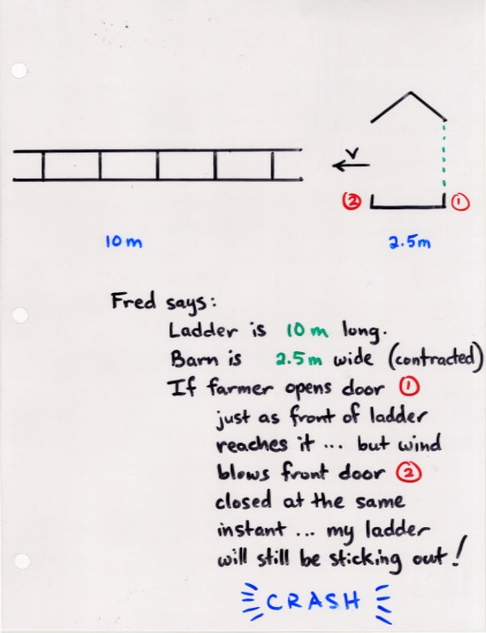 V
② ①
10 m 2.5 m
Fred says:
Ladder is 10 m long.
Barn is 2.5 m wide (contracted)
If farmer opens door ①
just as front of ladder
reaches it ... but wind
blows front door ②
closed at the same
instant ... my ladder
will still be sticking out!
CRASH